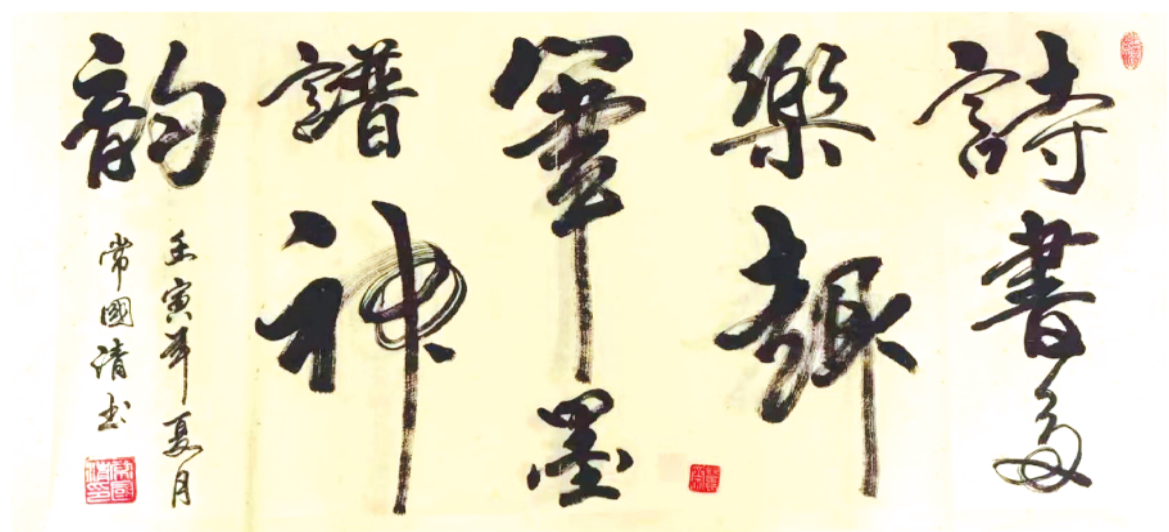 詩書多
樂趣
筆墨
譜神
韵
壬寅年夏月
常國清书